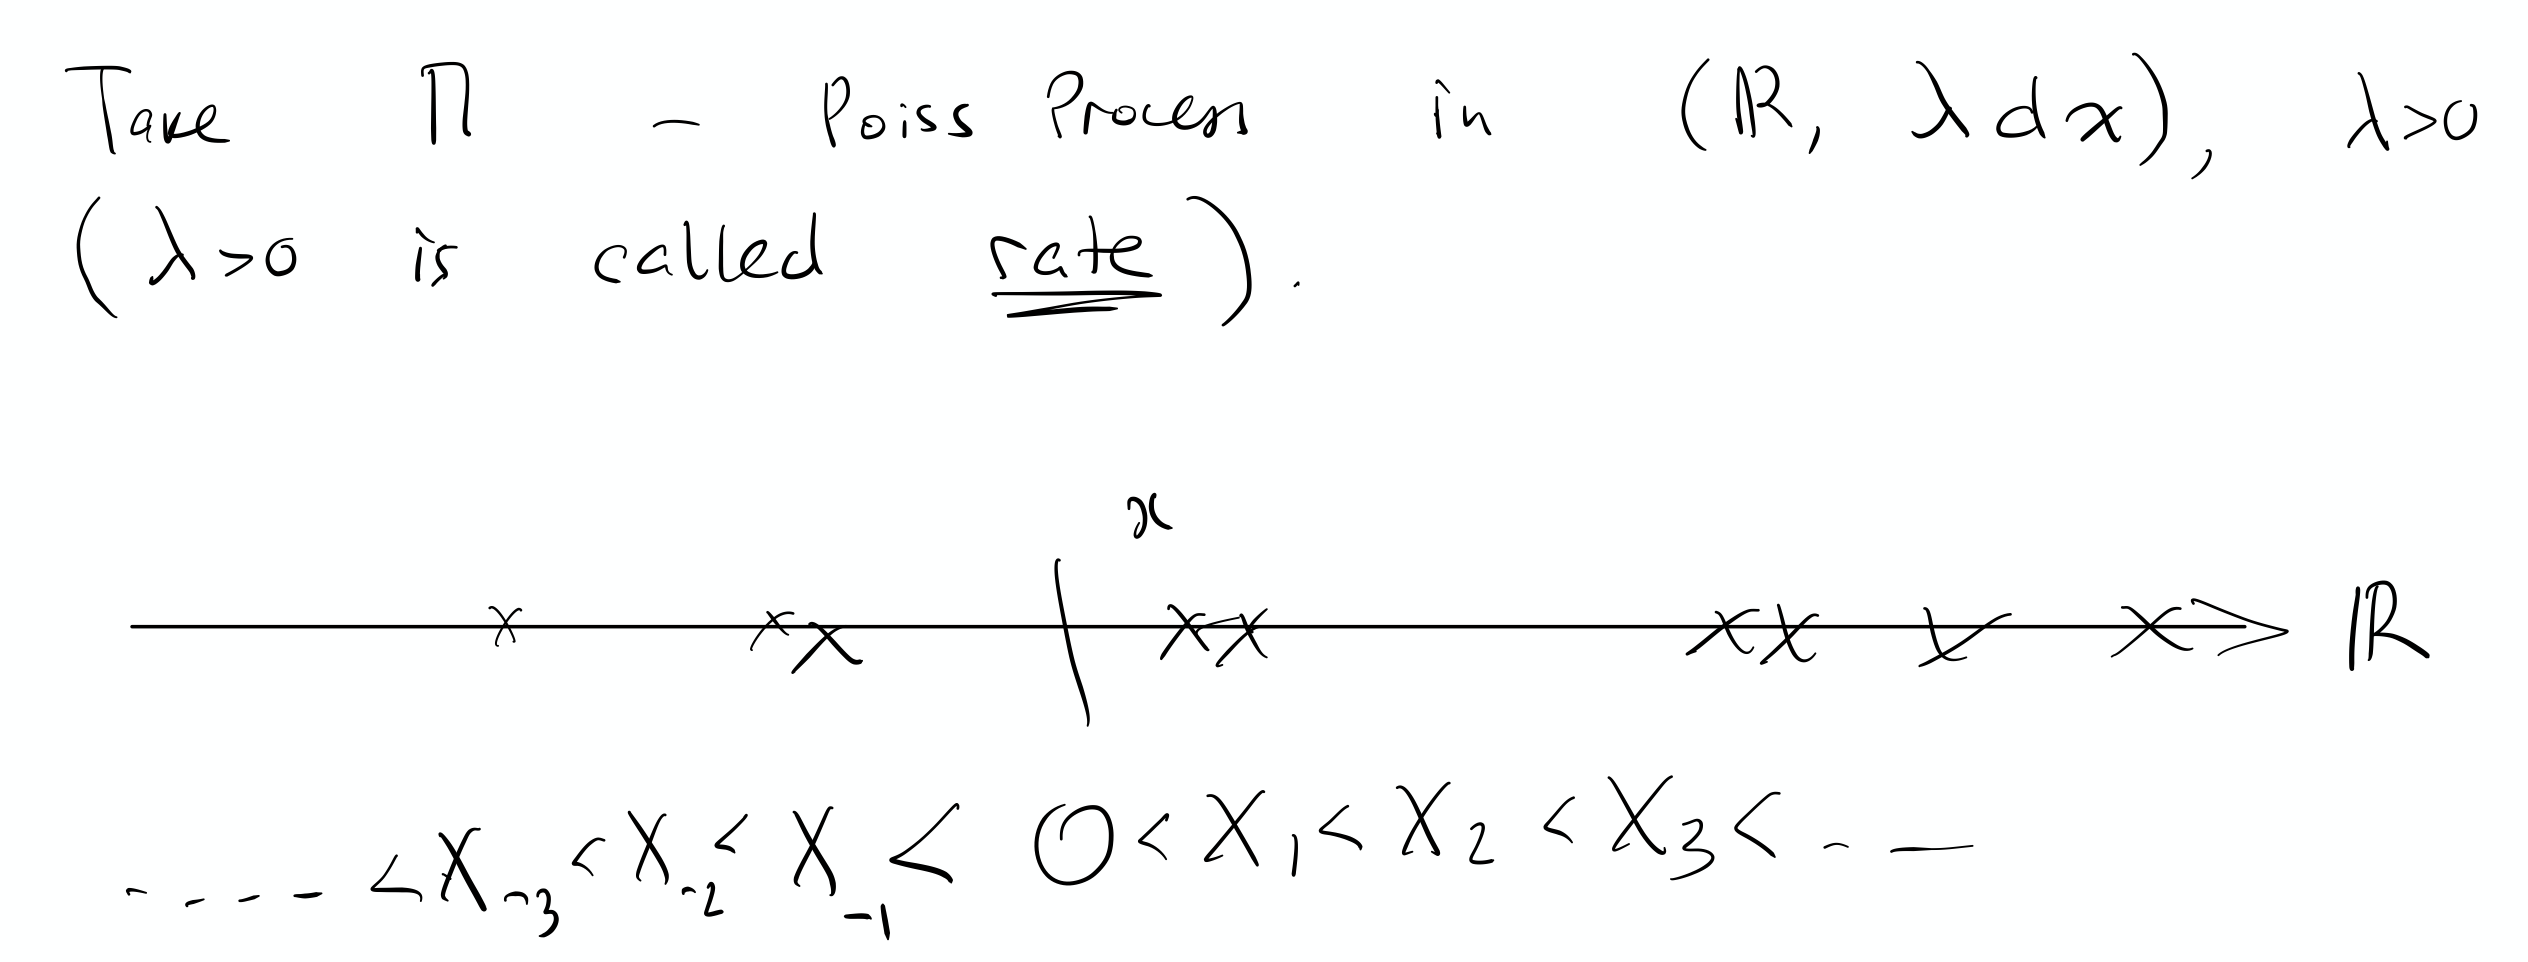 Take Π – Poiss Process in (ℝ, λdx), λ>0
(λ>0 is called rate).
x
ℝ
---- <X₋₃ <X₋₂ < X₋₁ < 0 < X₁ < X₂ < X₃ < - —